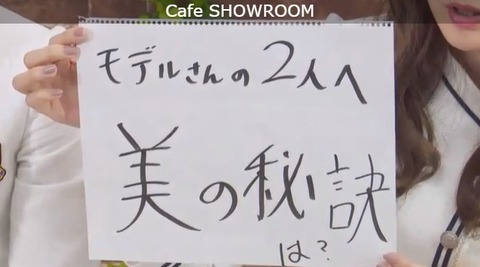 Cafe SHOWROOM
モデルさんの2人へ
美の秘訣
は?